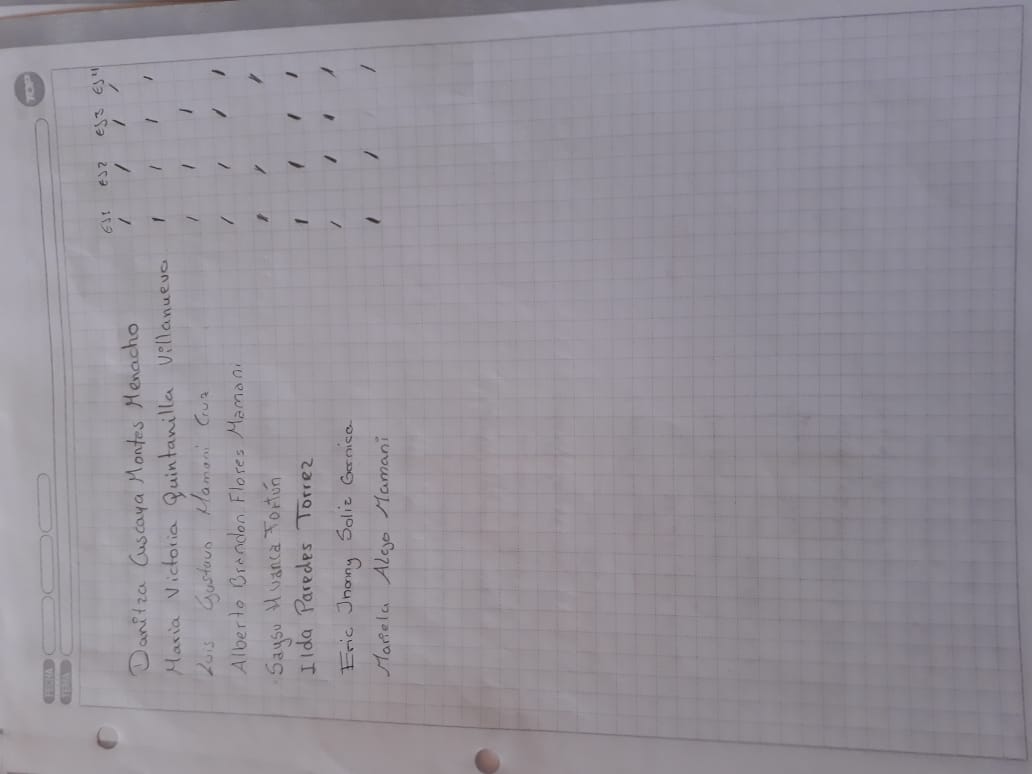 TOP
FECHA
TEMA
EJ1 EJ2 EJ3 EJ4
Danitza Cuscaya Montes Menacho / / / /
Maria Victoria Quintanilla Villanueva / / / /
Luis Gustavo Mamani Cruz / / /
Alberto Brandon Flores Mamani / / / /
Saysu Huanca Fortún / / /
Ilda Paredes Torrez / / / /
Eric Jhonny Soliz Garnica / / / /
Mariela Alejo Mamani / / /